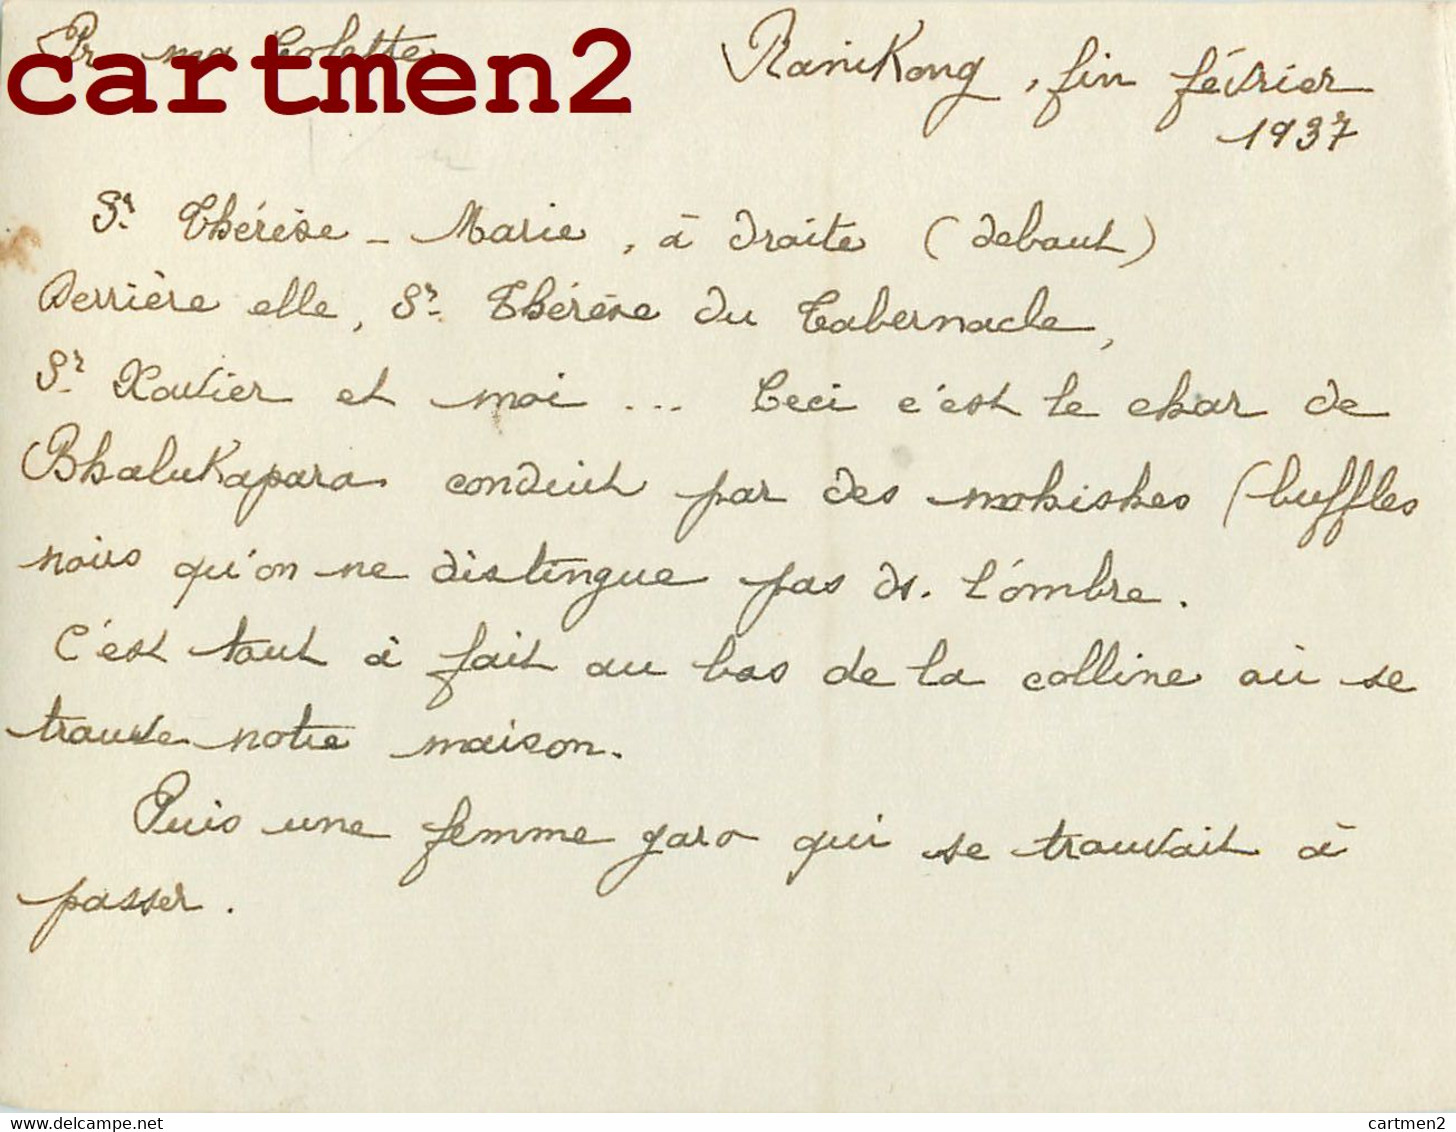 Pr ma Colette
cartmen2
Ranikong, fin février
1937
Sr Thérèse-Marie, à droite (debout)
Derrière elle, Sr Thérèse du Tabernacle,
Sr Xavier et moi ... Ceci c'est le char de
Bhalukapara conduit par des mohishes (buffles
noirs qu'on ne distingue pas ds. l'ombre.
C'est tout à fait au bas de la colline où se
trouve notre maison.
Puis une femme garo qui se trouvait à
passer.
www.delcampe.net
cartmen2